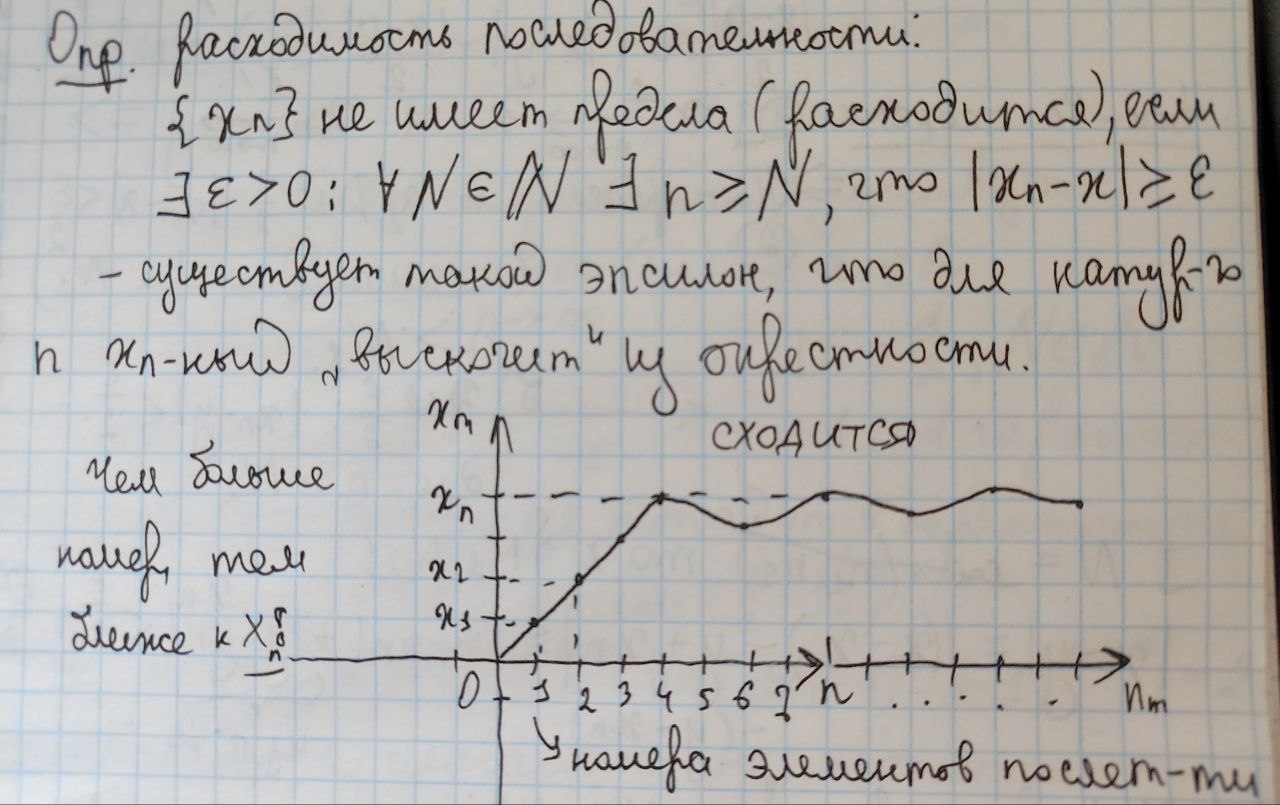 Опр. расходимость последовательности:
{xn} не имеет предела (расходится), если
∃ ε > 0 : ∀ N ∈ ℕ ∃ n ≥ N, что |xn - x| ≥ ε
- существует такой эпсилон, что для натур-го
n xn-ный „выскочит" из окрестности.
xm
СХОДИТСЯ
Чем больше
номер, тем
ближе к Xn
xn
x2
x1
0 1 2 3 4 5 6 7 n . . . . . nm
номера элементов послет-ти